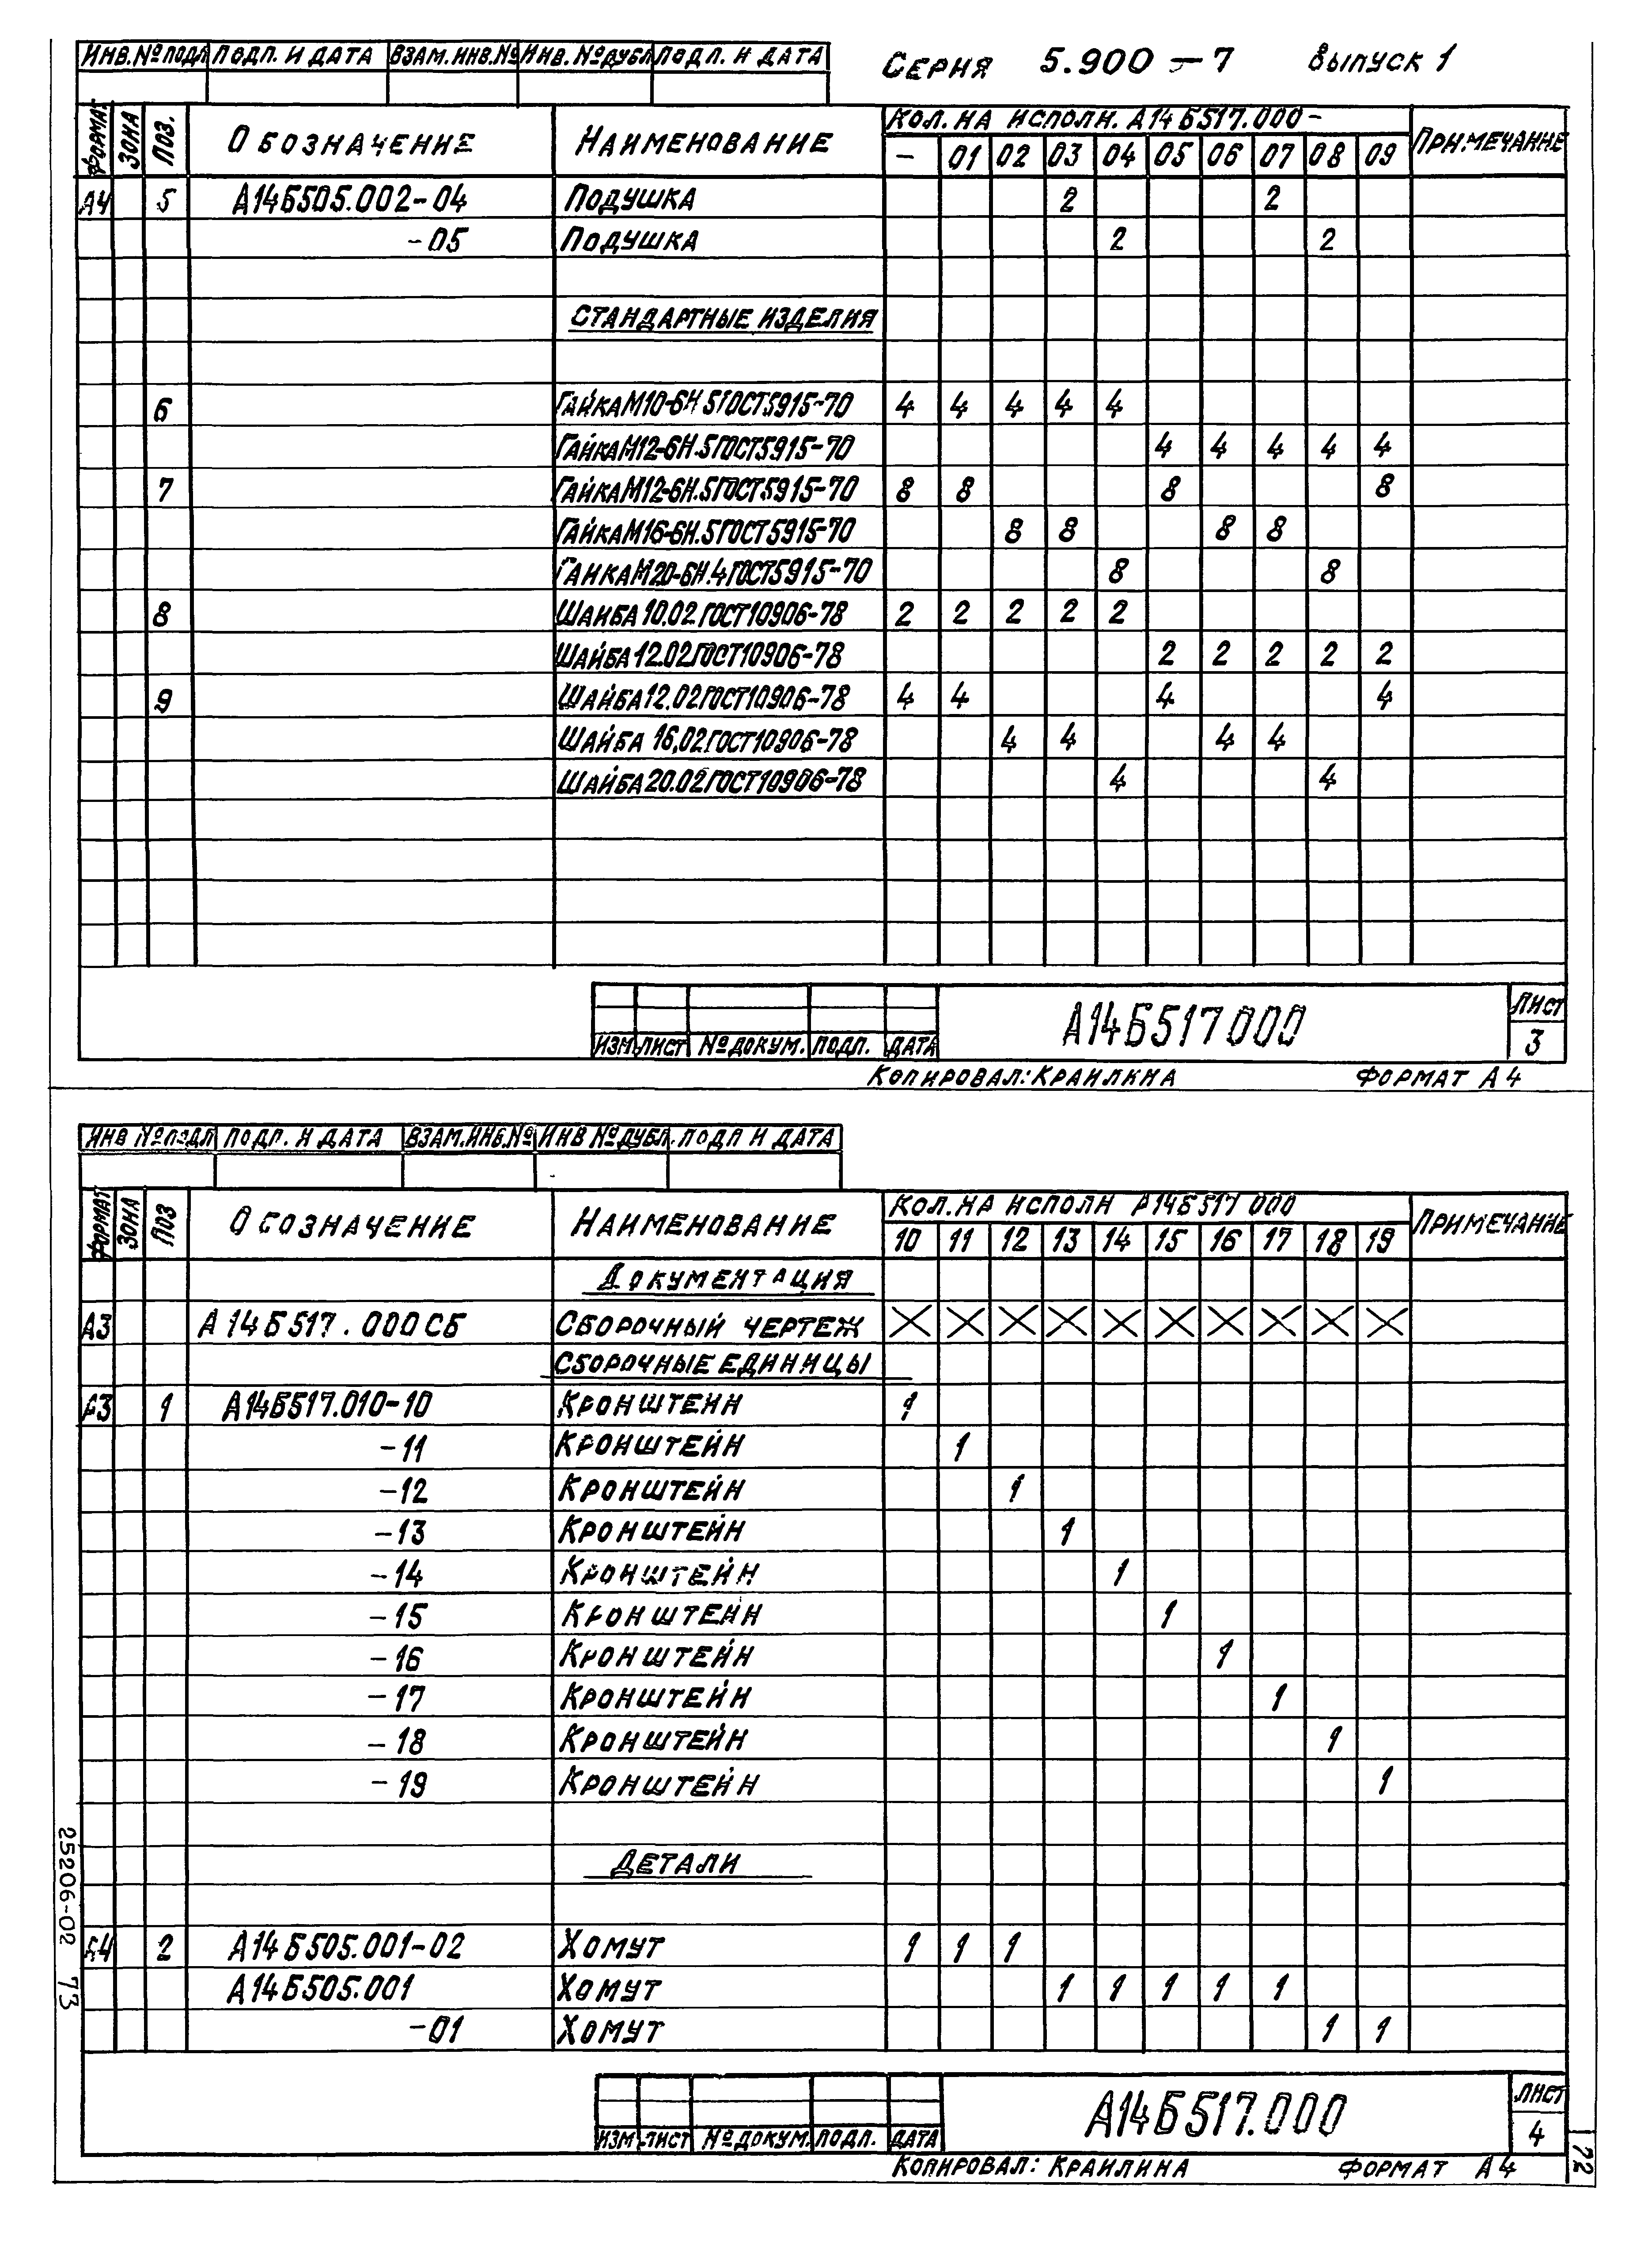 Инв.№подл Подп. и дата Взам.инв.№ Инв.№дубл Подп. и дата
Серия 5.900-7 Выпуск 1
Формат Зона Поз. Обозначение Наименование Кол.на исполн. А14Б517.000- Примечание
- 01 02 03 04 05 06 07 08 09
А4 5 А14Б505.002-04 Подушка 2 2
-05 Подушка 2 2
Стандартные изделия
6 Гайка М10-6Н.5 ГОСТ 5915-70 4 4 4 4 4
Гайка М12-6Н.5 ГОСТ 5915-70 4 4 4 4 4
7 Гайка М12-6Н.5 ГОСТ 5915-70 8 8 8 8
Гайка М16-6Н.5 ГОСТ 5915-70 8 8 8 8
Гайка М20-6Н.4 ГОСТ 5915-70 8 8
8 Шайба 10.02 ГОСТ 10906-78 2 2 2 2 2
Шайба 12.02 ГОСТ 10906-78 2 2 2 2 2
9 Шайба 12.02 ГОСТ 10906-78 4 4 4 4
Шайба 16.02 ГОСТ 10906-78 4 4 4 4
Шайба 20.02 ГОСТ 10906-78 4 4
Изм Лист №докум. Подп. Дата А14Б517 000 Лист 3
Копировал: Краилина Формат А4
Инв №подл Подп. и дата Взам.инв.№ Инв №дубл. Подп и дата
Формат Зона Поз Обозначение Наименование Кол.на исполн А14Б517 000 Примечание
10 11 12 13 14 15 16 17 18 19
Документация
А3 А14Б517.000СБ Сборочный чертеж X X X X X X X X X X
Сборочные единицы
А3 1 А14Б517.010-10 Кронштейн 1
-11 Кронштейн 1
-12 Кронштейн 1
-13 Кронштейн 1
-14 Кронштейн 1
-15 Кронштейн 1
-16 Кронштейн 1
-17 Кронштейн 1
-18 Кронштейн 1
-19 Кронштейн 1
Детали
А4 2 А14Б505.001-02 Хомут 1 1 1
А14Б505.001 Хомут 1 1 1 1 1
-01 Хомут 1 1
Изм Лист №докум. Подп. Дата А14Б517.000 Лист 4
Копировал: Краилина Формат А4
25206-02 73
72